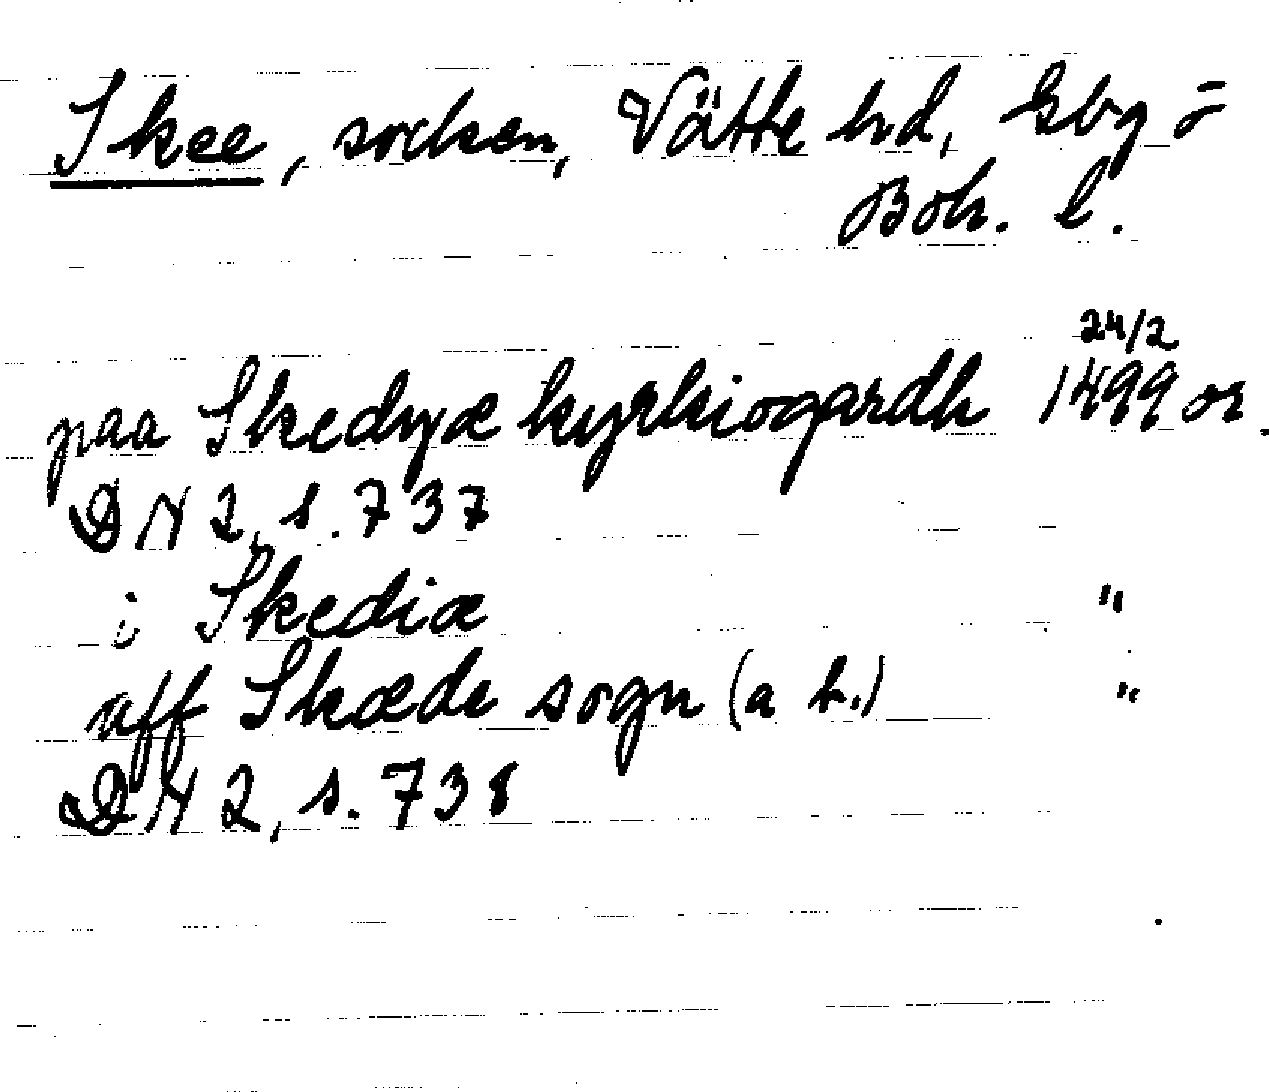 Skee, socken, Vätte hd, Gbg o
Boh. l.
24/2
paa Skedyæ kyrkiogardh 1499 or.
DN 2, s. 737
i Skediæ "
aff Skæde sogn (a h.) "
DN 2, s. 738